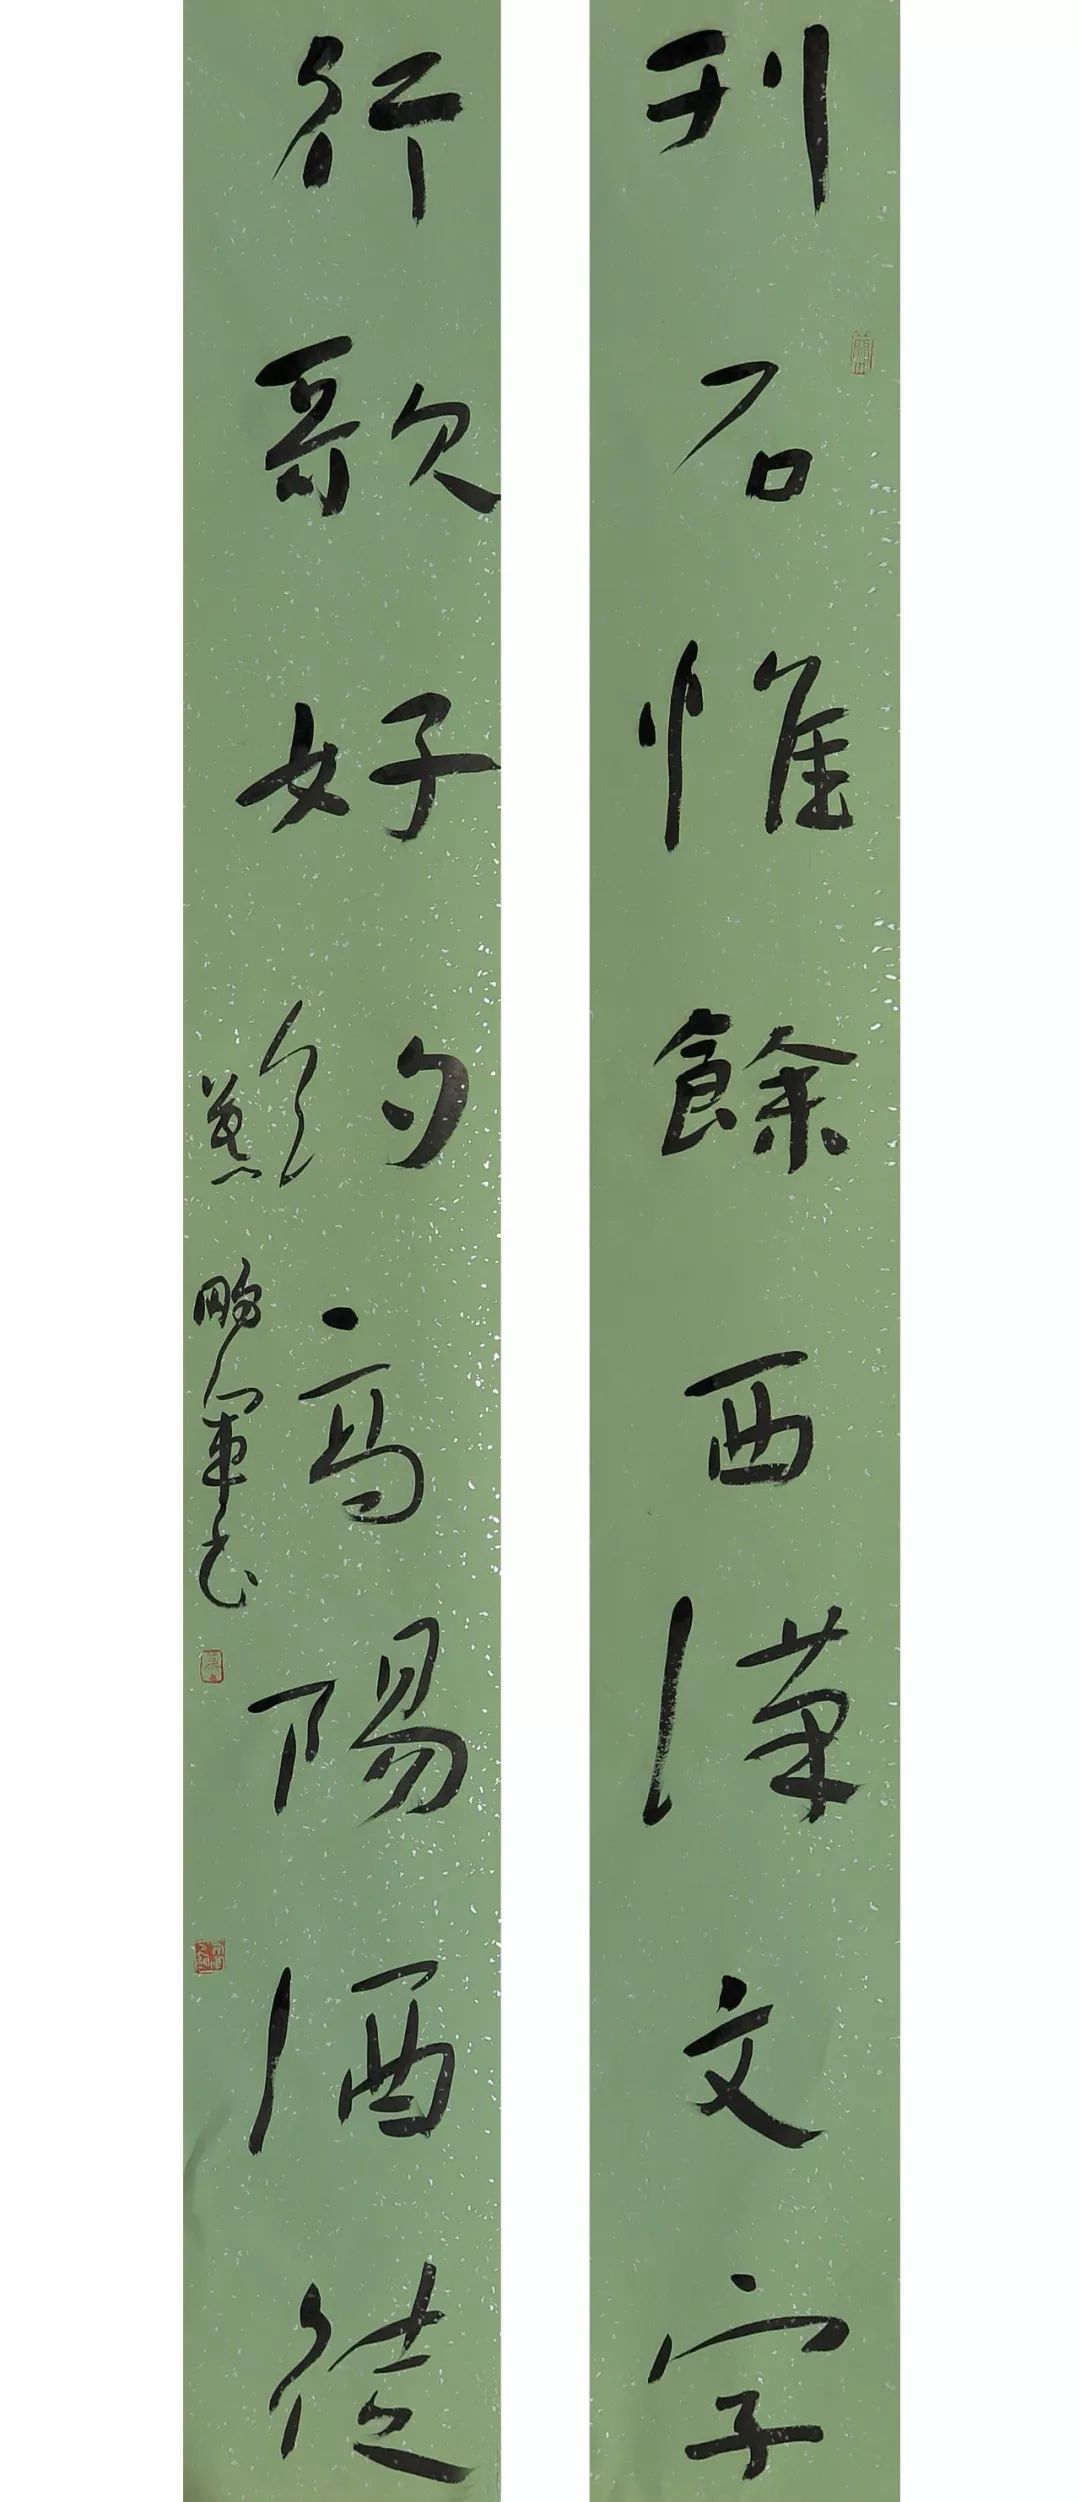 刊石惟餘西漢文字
行歌好約高陽酒徒
鵬軍书